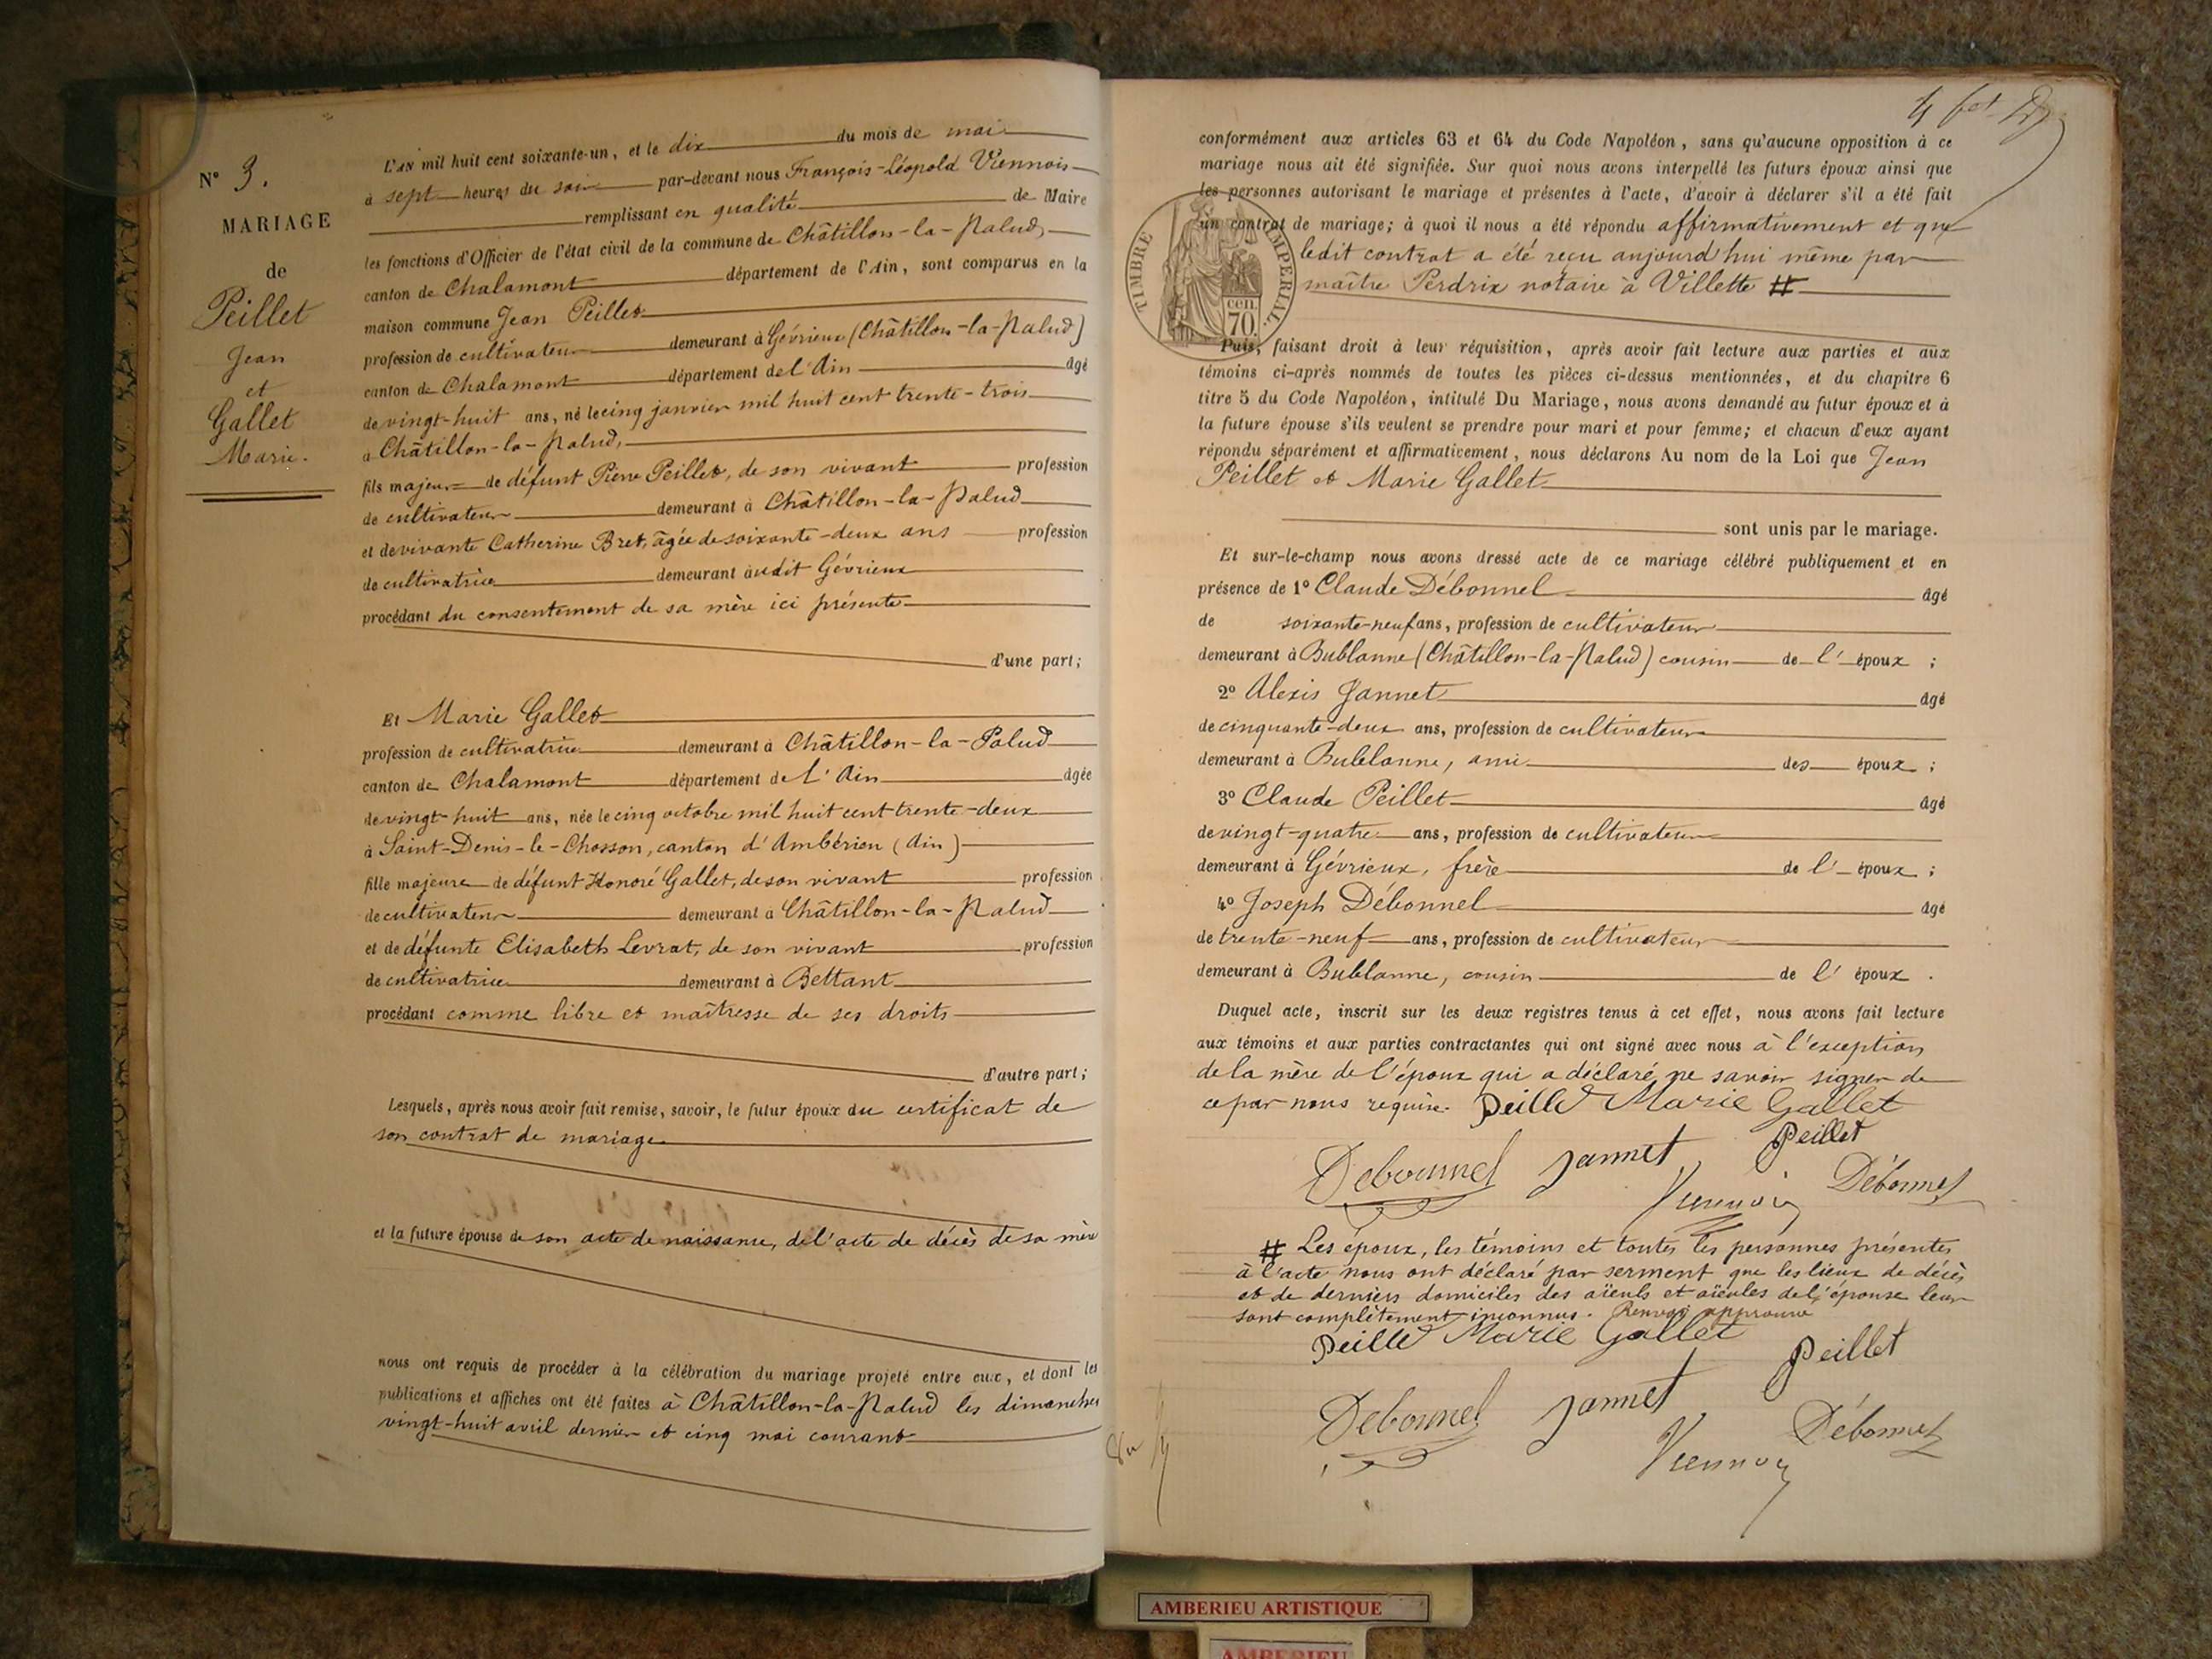 N° 3.
MARIAGE
de
Peillet
Jean
et
Gallet
Marie.
L'an mil huit cent soixante-un, et le dix du mois de mai
à sept heures du soir par-devant nous François-Léopold Viennois
remplissant en qualité de Maire
les fonctions d'Officier de l'état civil de la commune de Châtillon-la-Palud,
canton de Chalamont département de l'Ain, sont comparus en la
maison commune Jean Peillet
profession de cultivateur demeurant à Gévrieux (Châtillon-la-Palud)
canton de Chalamont département de l'Ain âgé
de vingt-huit ans, né le cinq janvier mil huit cent trente-trois
à Châtillon-la-Palud,
fils majeur de défunt Pierre Peillet, de son vivant profession
de cultivateur demeurant à Châtillon-la-Palud
et de vivante Catherine Bret, âgée de soixante-deux ans profession
de cultivatrice demeurant audit Gévrieux
procédant du consentement de sa mère ici présente
d'une part;
Et Marie Gallet
profession de cultivatrice demeurant à Châtillon-la-Palud
canton de Chalamont département de l'Ain âgée
de vingt-huit ans, née le cinq octobre mil huit cent trente-deux
à Saint-Denis-le-Chosson, canton d'Ambérieu (Ain)
fille majeure de défunt Honoré Gallet, de son vivant profession
de cultivateur demeurant à Châtillon-la-Palud
et de défunte Elisabeth Levrat, de son vivant profession
de cultivatrice demeurant à Bettant
procédant comme libre et maîtresse de ses droits
d'autre part;
Lesquels, après nous avoir fait remise, savoir, le futur époux du certificat de
son contrat de mariage
et la future épouse de son acte de naissance, de l'acte de décès de sa mère
nous ont requis de procéder à la célébration du mariage projeté entre eux, et dont les
publications et affiches ont été faites à Châtillon-la-Palud les dimanches
vingt-huit avril dernier et cinq mai courant
conformément aux articles 63 et 64 du Code Napoléon, sans qu'aucune opposition à ce
mariage nous ait été signifiée. Sur quoi nous avons interpellé les futurs époux ainsi que
les personnes autorisant le mariage et présentes à l'acte, d'avoir à déclarer s'il a été fait
un contrat de mariage; à quoi il nous a été répondu affirmativement et que
ledit contrat a été reçu aujourd'hui même par
maître Perdrix notaire à Villette #
TIMBRE IMPERIAL.
cen
70.
Puis, faisant droit à leur réquisition, après avoir fait lecture aux parties et aux
témoins ci-après nommés de toutes les pièces ci-dessus mentionnées, et du chapitre 6
titre 5 du Code Napoléon, intitulé Du Mariage, nous avons demandé au futur époux et à
la future épouse s'ils veulent se prendre pour mari et pour femme; et chacun d'eux ayant
répondu séparément et affirmativement, nous déclarons Au nom de la Loi que Jean
Peillet et Marie Gallet
sont unis par le mariage.
Et sur-le-champ nous avons dressé acte de ce mariage célébré publiquement et en
présence de 1° Claude Débonnel âgé
de soixante-neuf ans, profession de cultivateur
demeurant à Bublanne (Châtillon-la-Palud) cousin de l'époux;
2° Alexis Jannet âgé
de cinquante-deux ans, profession de cultivateur
demeurant à Bublanne, ami des époux;
3° Claude Peillet âgé
de vingt-quatre ans, profession de cultivateur
demeurant à Gévrieux, frère de l'époux;
4° Joseph Débonnel âgé
de trente-neuf ans, profession de cultivateur
demeurant à Bublanne, cousin de l'époux.
Duquel acte, inscrit sur les deux registres tenus à cet effet, nous avons fait lecture
aux témoins et aux parties contractantes qui ont signé avec nous à l'exception
de la mère de l'époux qui a déclaré ne savoir signer de
ce par nous requise. Peillet Marie Gallet
Debonnel Jannet Peillet
Viennois Débonnel
# Les époux, les témoins et toutes les personnes présentes
à l'acte nous ont déclaré par serment que les lieux de décès
et de derniers domiciles des aïeuls et aïeules de l'épouse leur
sont complètement inconnus. Renvoi approuvé
Peillet Marie Gallet Peillet
Debonnel Jannet Débonnel
Viennois
AMBERIEU ARTISTIQUE
AMBERIEU